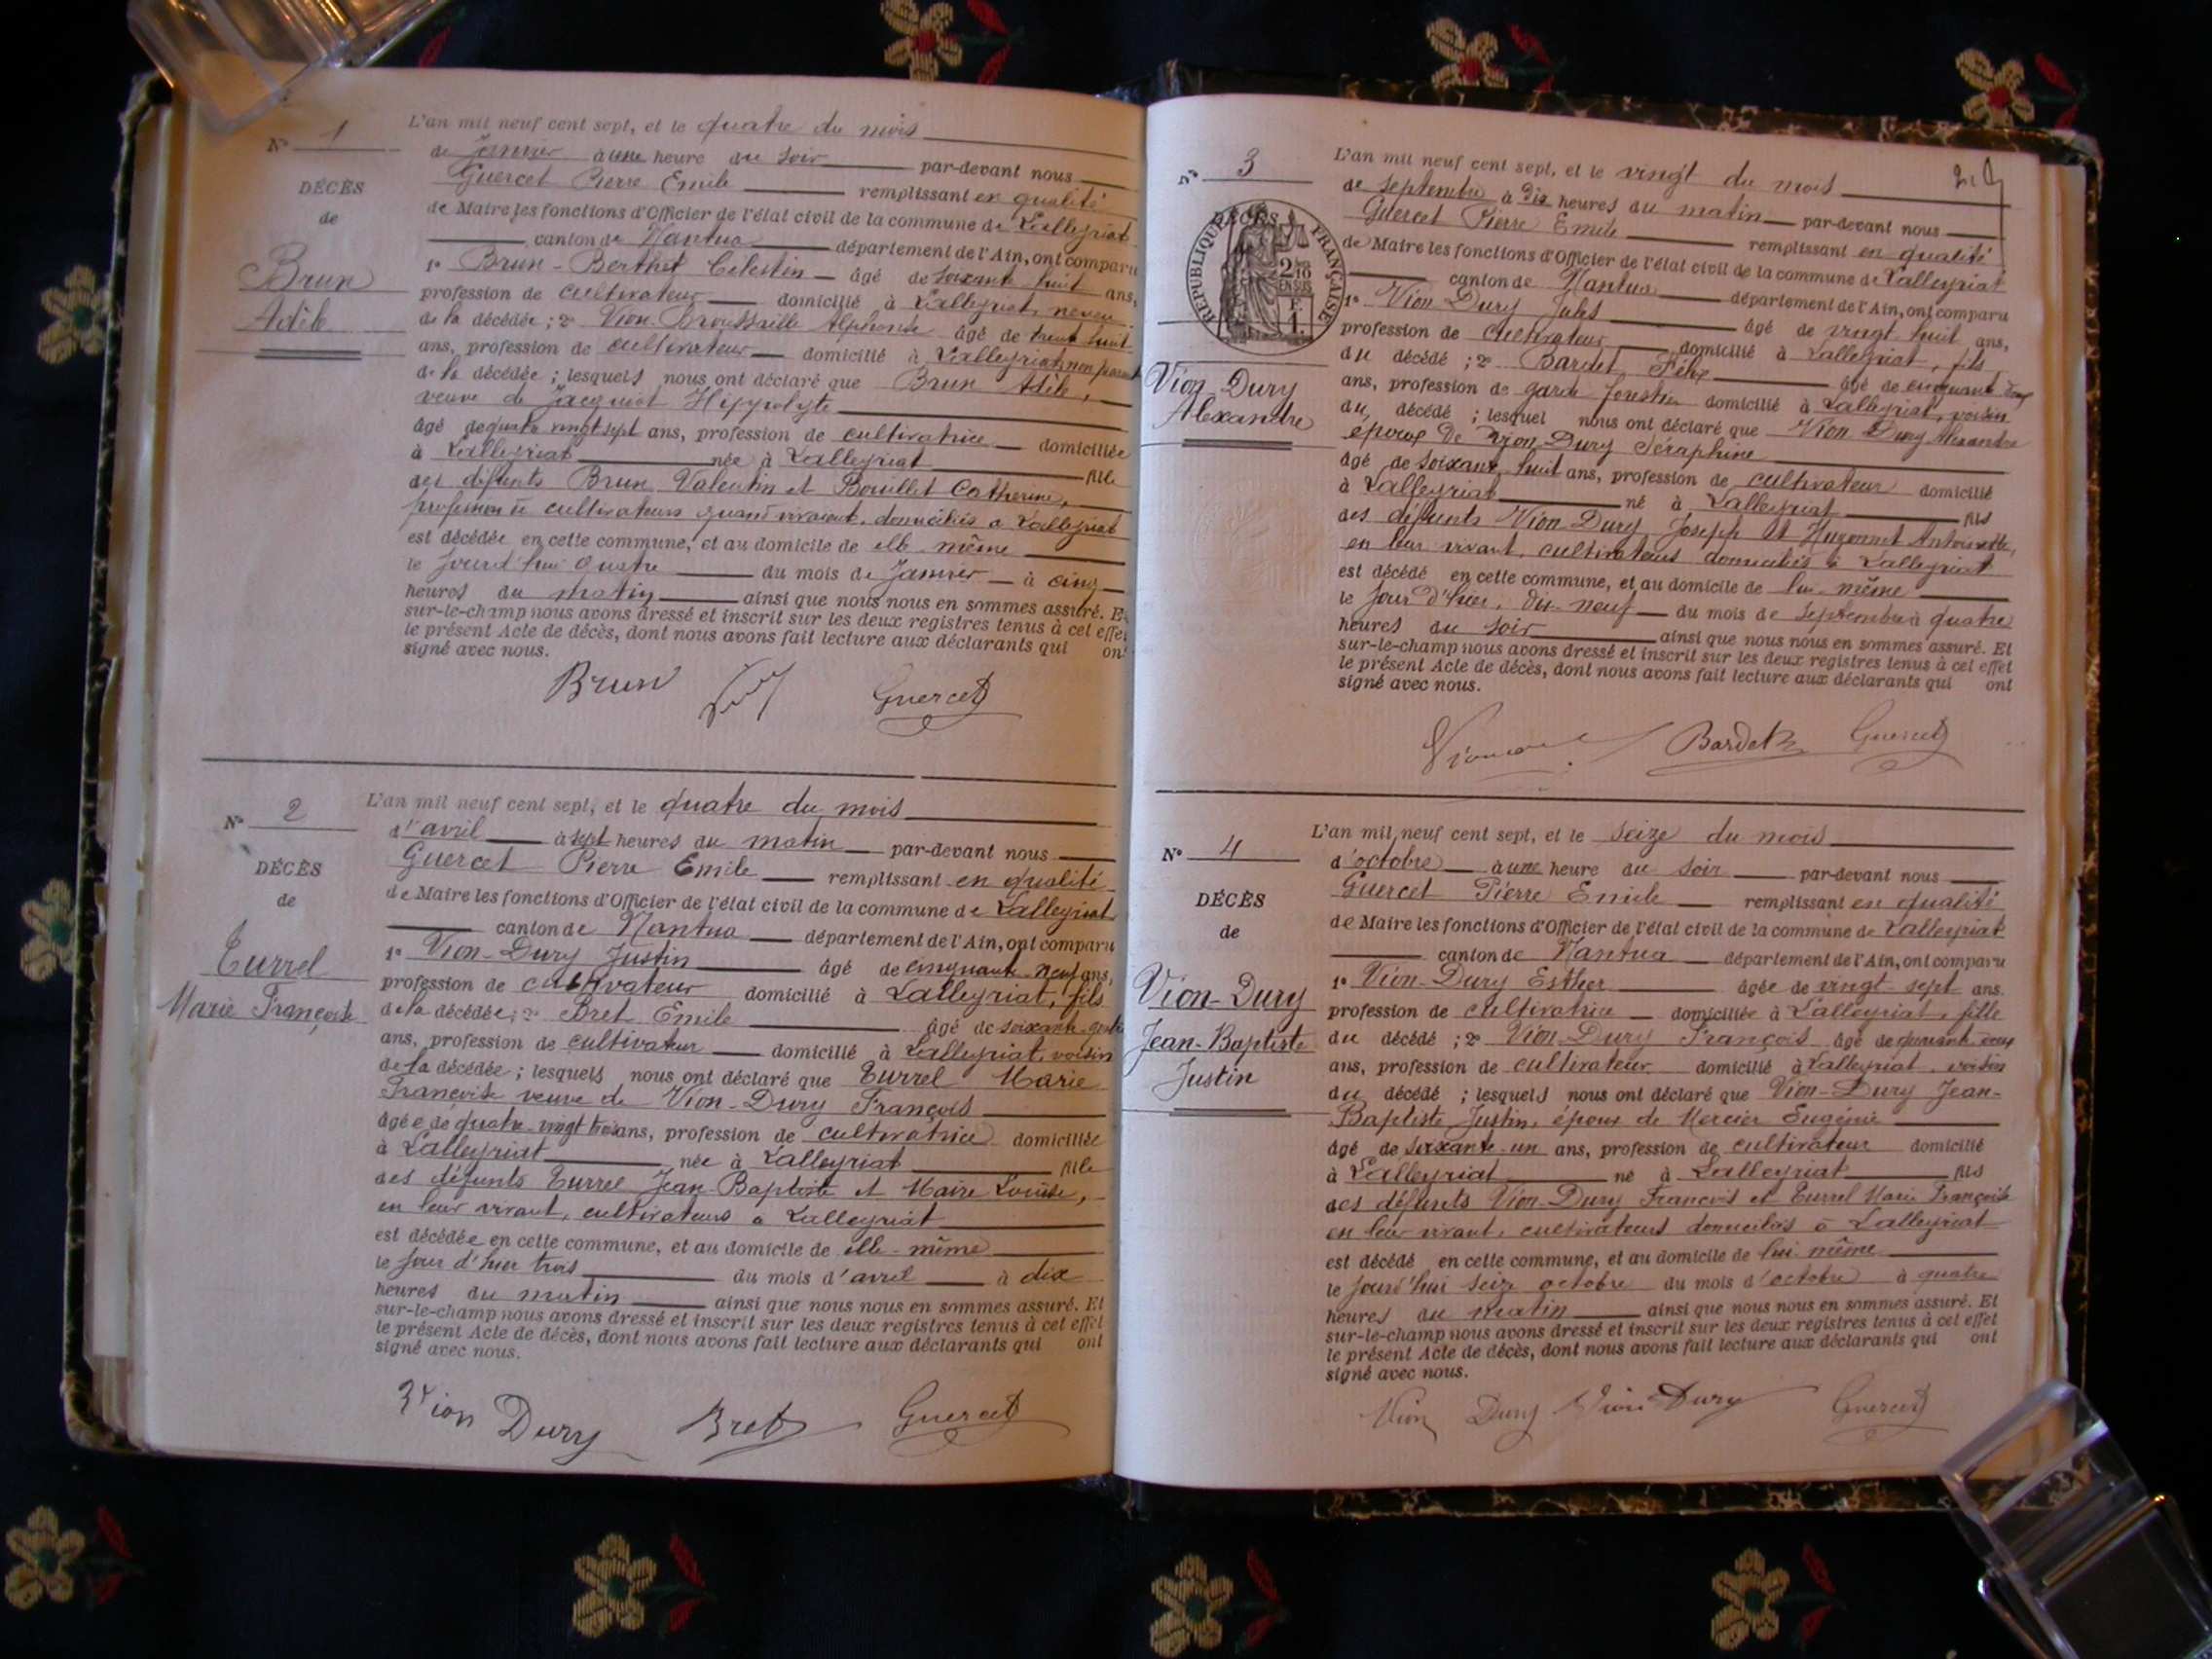 N° 1
DÉCÈS
de
Brun
Adèle
L'an mil neuf cent sept, et le quatre du mois
de Janvier à une heure du soir par-devant nous
Guercet Pierre Emile remplissant en qualité
de Maire les fonctions d'Officier de l'état civil de la commune de Lalleyriat
canton de Nantua département de l'Ain, ont comparu
1° Brun-Berthet Célestin âgé de soixante huit ans,
profession de cultivateur domicilié à Lalleyriat, neveu
de la décédée ; 2° Vion Broussaille Alphonse âgé de trente huit
ans, profession de cultivateur domicilié à Lalleyriat, non parent
de la décédée ; lesquels nous ont déclaré que Brun Adèle,
veuve de Jacquiot Hippolyte
âgé de quatre vingt sept ans, profession de cultivatrice domiciliée
à Lalleyriat née à Lalleyriat fille
des défunts Brun Valentin et Bouillet Catherine,
profession de cultivateurs quand vivaient, domiciliés à Lalleyriat
est décédée en cette commune, et au domicile de elle-même
le jourd'hui quatre du mois de Janvier à cinq
heures du matin ainsi que nous nous en sommes assuré. Et
sur-le-champ nous avons dressé et inscrit sur les deux registres tenus à cet effet
le présent Acte de décès, dont nous avons fait lecture aux déclarants qui ont
signé avec nous.
Brun Guercet
N° 2
DÉCÈS
de
Turrel
Marie Françoise
L'an mil neuf cent sept, et le quatre du mois
d'avril à sept heures du matin par-devant nous
Guercet Pierre Emile remplissant en qualité
de Maire les fonctions d'Officier de l'état civil de la commune de Lalleyriat
canton de Nantua département de l'Ain, ont comparu
1° Vion-Dury Justin âgé de cinquante-neuf ans,
profession de cultivateur domicilié à Lalleyriat, fils
de la décédée ; 2° Bret Emile âgé de soixante-quatre
ans, profession de cultivateur domicilié à Lalleyriat, voisin
de la décédée ; lesquels nous ont déclaré que Turrel Marie
Françoise veuve de Vion-Dury François
âgée de quatre-vingt trois ans, profession de cultivatrice domiciliée
à Lalleyriat née à Lalleyriat fille
des défunts Turrel Jean-Baptiste et Maire Louise,
en leur vivant, cultivateurs à Lalleyriat
est décédée en cette commune, et au domicile de elle-même
le jour d'hier trois du mois d'avril à dix
heures du matin ainsi que nous nous en sommes assuré. Et
sur-le-champ nous avons dressé et inscrit sur les deux registres tenus à cet effet
le présent Acte de décès, dont nous avons fait lecture aux déclarants qui ont
signé avec nous.
Vion Dury Bret Guercet
N° 3
DÉCÈS
RÉPUBLIQUE FRANÇAISE
2/10 EN SUS
F. 1.
Vion-Dury
Alexandre
L'an mil neuf cent sept, et le vingt du mois
de septembre à dix heures du matin par-devant nous
Guercet Pierre Emile remplissant en qualité
de Maire les fonctions d'Officier de l'état civil de la commune de Lalleyriat
canton de Nantua département de l'Ain, ont comparu
1° Vion Dury Jules âgé de vingt-huit ans,
profession de cultivateur domicilié à Lalleyriat, fils
du décédé ; 2° Bardet Félix âgé de cinquante deux
ans, profession de garde forestier domicilié à Lalleyriat, voisin
du décédé ; lesquel nous ont déclaré que Vion Dury Alexandre
époux de Vion-Dury Séraphine
âgé de soixante-huit ans, profession de cultivateur domicilié
à Lalleyriat né à Lalleyriat fils
des défunts Vion-Dury Joseph et Hugonnet Antoinette,
en leur vivant, cultivateurs domiciliés à Lalleyriat
est décédé en cette commune, et au domicile de lui-même
le jour d'hier, dix-neuf du mois de septembre à quatre
heures du soir ainsi que nous nous en sommes assuré. Et
sur-le-champ nous avons dressé et inscrit sur les deux registres tenus à cet effet
le présent Acte de décès, dont nous avons fait lecture aux déclarants qui ont
signé avec nous.
Bardet Guercet
N° 4
DÉCÈS
de
Vion-Dury
Jean-Baptiste
Justin
L'an mil neuf cent sept, et le seize du mois
d'octobre à une heure du soir par-devant nous
Guercet Pierre Emile remplissant en qualité
de Maire les fonctions d'Officier de l'état civil de la commune de Lalleyriat
canton de Nantua département de l'Ain, ont comparu
1° Vion-Dury Esther âgée de vingt-sept ans
profession de cultivatrice domiciliée à Lalleyriat, fille
du décédé ; 2° Vion-Dury François âgé de quarante deux
ans, profession de cultivateur domicilié à Lalleyriat, voisin
du décédé ; lesquels nous ont déclaré que Vion-Dury Jean-
Baptiste Justin, époux de Mercier Eugénie
âgé de soixante-un ans, profession de cultivateur domicilié
à Lalleyriat né à Lalleyriat fils
des défunts Vion-Dury François et Turrel Marie Françoise
en leur vivant, cultivateurs domiciliés à Lalleyriat
est décédé en cette commune, et au domicile de lui-même
le jourd'hui seize octobre du mois d'octobre à quatre
heures du matin ainsi que nous nous en sommes assuré. Et
sur-le-champ nous avons dressé et inscrit sur les deux registres tenus à cet effet
le présent Acte de décès, dont nous avons fait lecture aux déclarants qui ont
signé avec nous.
Vion Dury Vion Dury Guercet